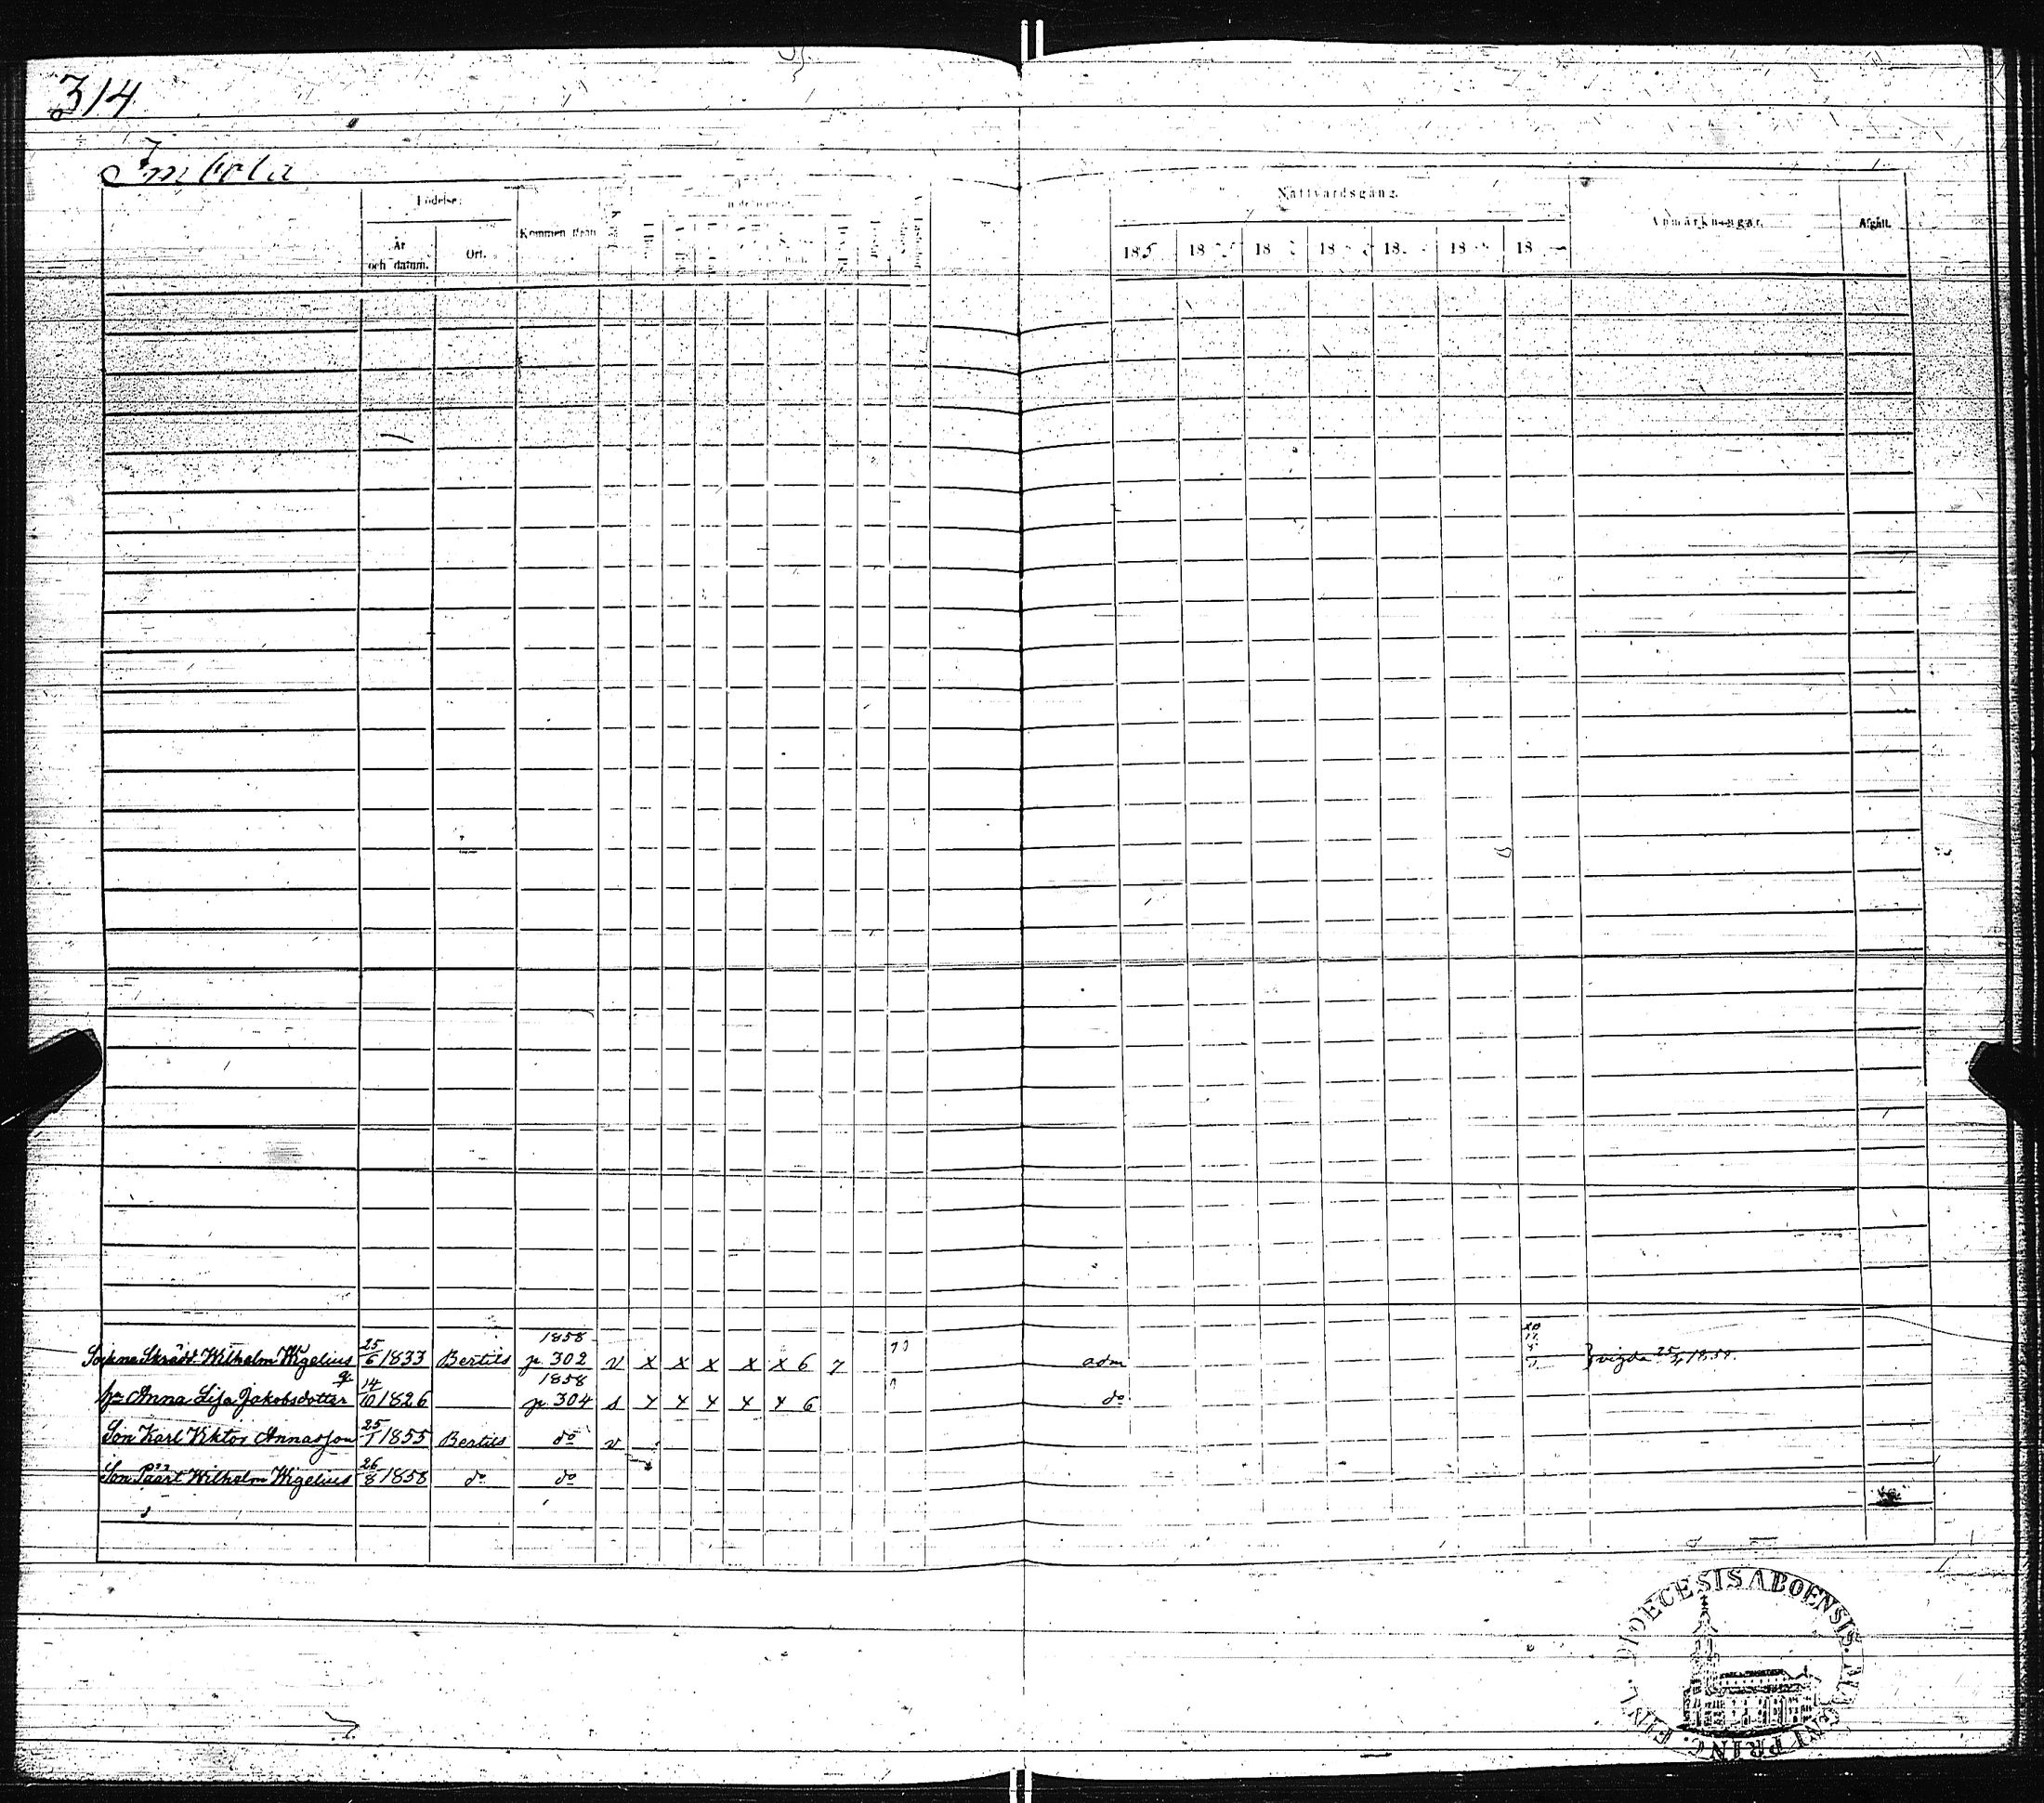 314
Imbola
Födelse:
Nattvardsgång.
År och datum.
Ort.
Kommen ifrån
185
18
18
18
18
18
18
Anmärkningar.
Afgått.
1858
Sockne Skrädd. Wilhelm Wigelius 25/6 1833 Bertils p. 302 v x x x x x 6 7 adm vigda 25/4 1858.
1858
h: Anna Lisa Jakobsdotter 14/10 1826 p. 304 s x x x x x 6 do
Son Karl Viktor Annasson 25/1 1855 Bertils do v
Son Wilhelm Wigelius 26/8 1858 do do
DIOECESIS ABOENSIS